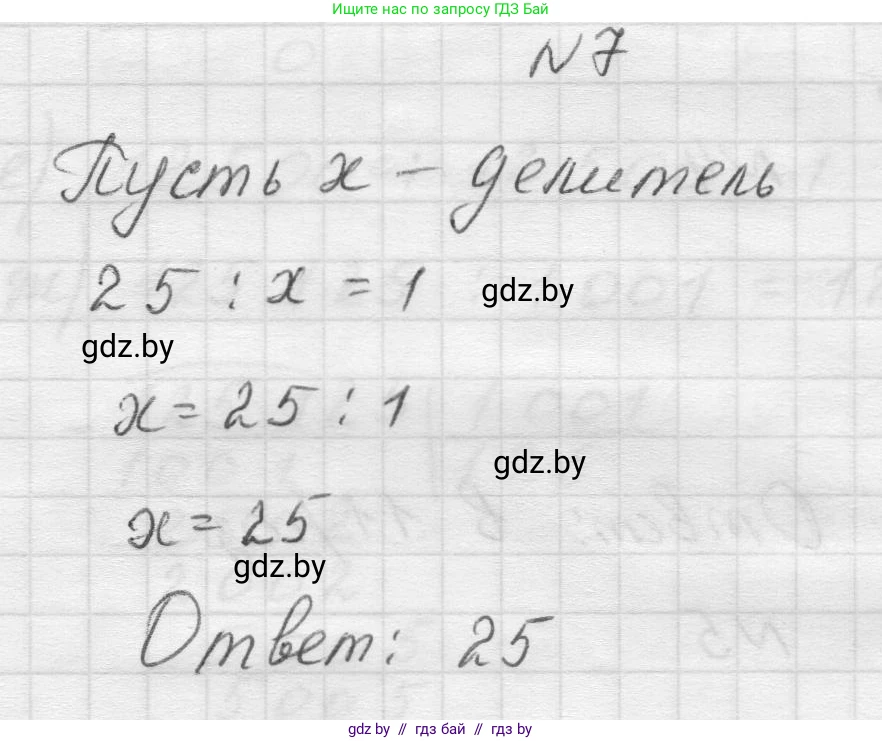 Ищите нас по запросу ГДЗ Бай
№7
Пусть x – делитель
25 : x = 1
gdz.by
gdz.by
x = 25 : 1
gdz.by
x = 25
gdz.by
Ответ: 25
gdz.by // гдз бай // gdz.by